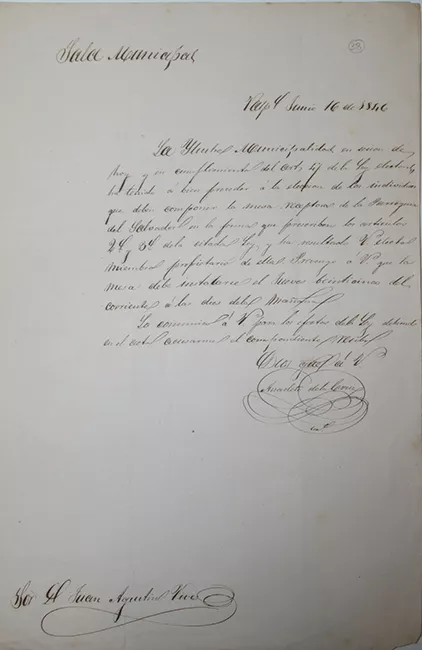 Sala Municipal
Valp.º Junio 16 de 1846
La Ylustre Municipalidad en sesion de
hoy y en cumplimiento del art. 47 de la Ley electoral
ha á bien proceder á la de los individuos
que deben componer la mesa receptora de la Parroquia
del Salvador en la forma que los articulos
29 y 34 de la citada Ley, y ha resultado V. electo
miembro propietario de ella. á V. que la
mesa debe instalarse el Jueves del
corriente á las dies de la Mañana
Lo comunico á V. para los efectos de la Ley
en el el correspondiente recibo
Dios gue á V.
Anacleto de la Cruz
Sor D. Juan Agustin Vives